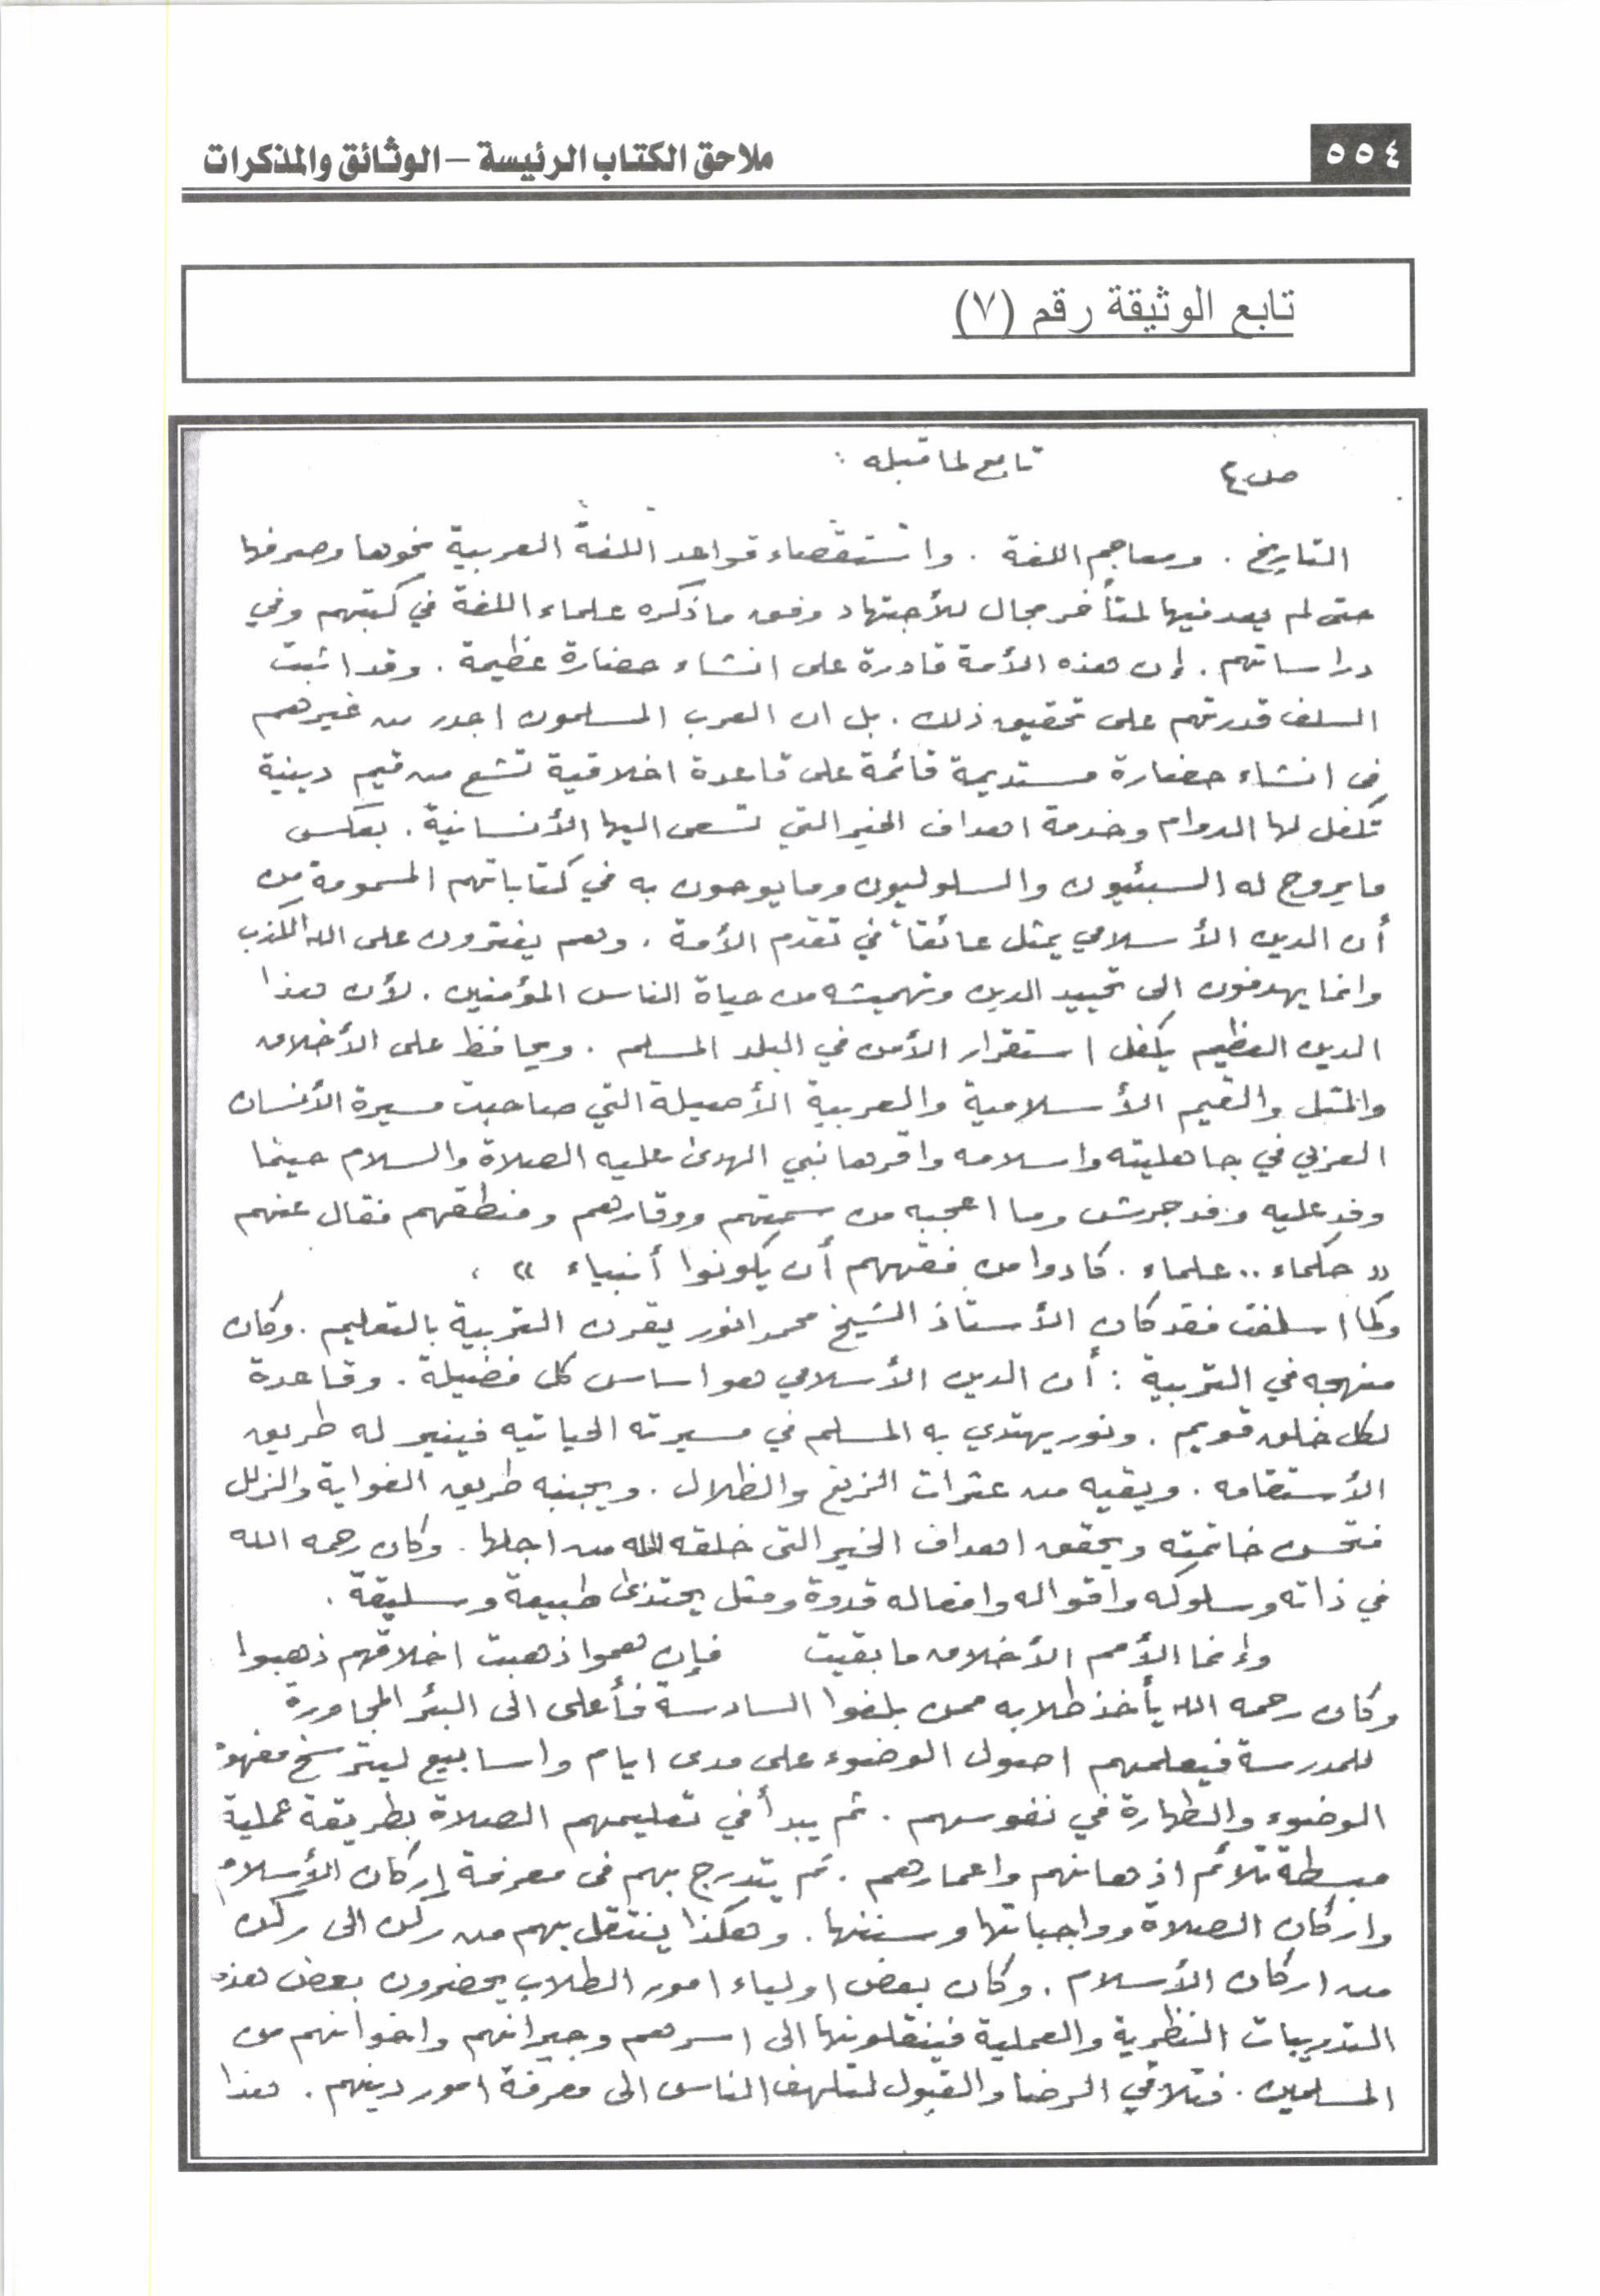 ٥٥٤
ملاحق الكتاب الرئيسة – الوثائق والمذكرات
تابع الوثيقة رقم (٧)
ص٤
تابع لما قبله :
التاريخ . ومعاجم اللغة . واستقصاء قواعد اللغة العربية نحوها وصرفها
حتى لم يعد فيها لمتأخر مجال للأجتهاد وفق ما ذكره علماء اللغة في كتبهم وفي
دراساتهم . إن هذه الأمة قادرة على انشاء حضارة عظيمة . وقد اثبت
السلف قدرتهم على تحقيق ذلك . بل ان العرب المسلمون اجدر من غيرهم
في انشاء حضارة مستديمة قائمة على قاعدة اخلاقية تشع من قيم دينية
تكفل لها الدوام وخدمة اهداف الخير التي تسعى اليها الأنسانية . بعكس
ما يروج له السبئيون والسلوليون وما يوحون به في كتاباتهم المسمومة من
أن الدين الأسلامي يمثل عائقاً في تقدم الأمة . وهم يفترون على الله الكذب
وانما يهدفون الى تحييد الدين وتهميشه من حياة الناس المؤمنين . لأن هذا
الدين العظيم يكفل استقرار الأمن في البلد المسلم . ويحافظ على الأخلاق
والمثل والقيم الأسلامية والعربية الأصيلة التي صاحبت مسيرة الأنسان
العربي في جاهليته واسلامه واقرها نبي الهدى عليه الصلاة والسلام حينما
وفد عليه وفد جرش وما اعجبه من سمتهم ووقارهم ومنطقهم فقال عنهم
« حكماء .. علماء . كادوا من فقههم أن يكونوا أنبياء » .
وكما اسلفت فقد كان الأستاذ الشيخ محمد انور يقرن التربية بالتعليم . وكان
منهجه في التربية : أن الدين الأسلامي هو اساس كل فضيلة . وقاعدة
لكل خلق قويم . ونور يهتدي به المسلم في مسيرته الحياتيه فينير له طريق
الأستقامه . ويقيه من عثرات الزيغ والظلال . ويجنبه طريق الغواية والزلل
فتحسن خاتمته ويحقق اهداف الخير التي خلقه الله من اجلها . وكان رحمه الله
في ذاته وسلوكه واقواله وافعاله قدوة ومثل يحتذى طبيعة وسليقة .
وإنما الأمم الأخلاق ما بقيت فإن همو اذهبت اخلاقهم ذهبوا
وكان رحمه الله يأخذ طلابه ممن بلغوا السادسة فأعلى الى البئر المجاورة
للمدرسة فيعلمهم اصول الوضوء على مدى ايام واسابيع ليترسخ مفهوم
الوضوء والطهارة في نفوسهم . ثم يبدأ في تعليمهم الصلاة بطريقة عملية
مبسطة تلائم اذهانهم واعمارهم . ثم يتدرج بهم في معرفة إركان الأسلام
واركان الصلاة وواجباتها وسننها . وهكذا ينتقل بهم من ركن الى ركن
من اركان الأسلام . وكان بعض اولياء امور الطلاب يحضرون بعض هذه
التدريبات النظرية والعملية فينقلونها الى اسرهم وجيرانهم واخوانهم من
المسلمين . فتلاقي الرضا والقبول لتلهف الناس الى معرفة امور دينهم . هذا